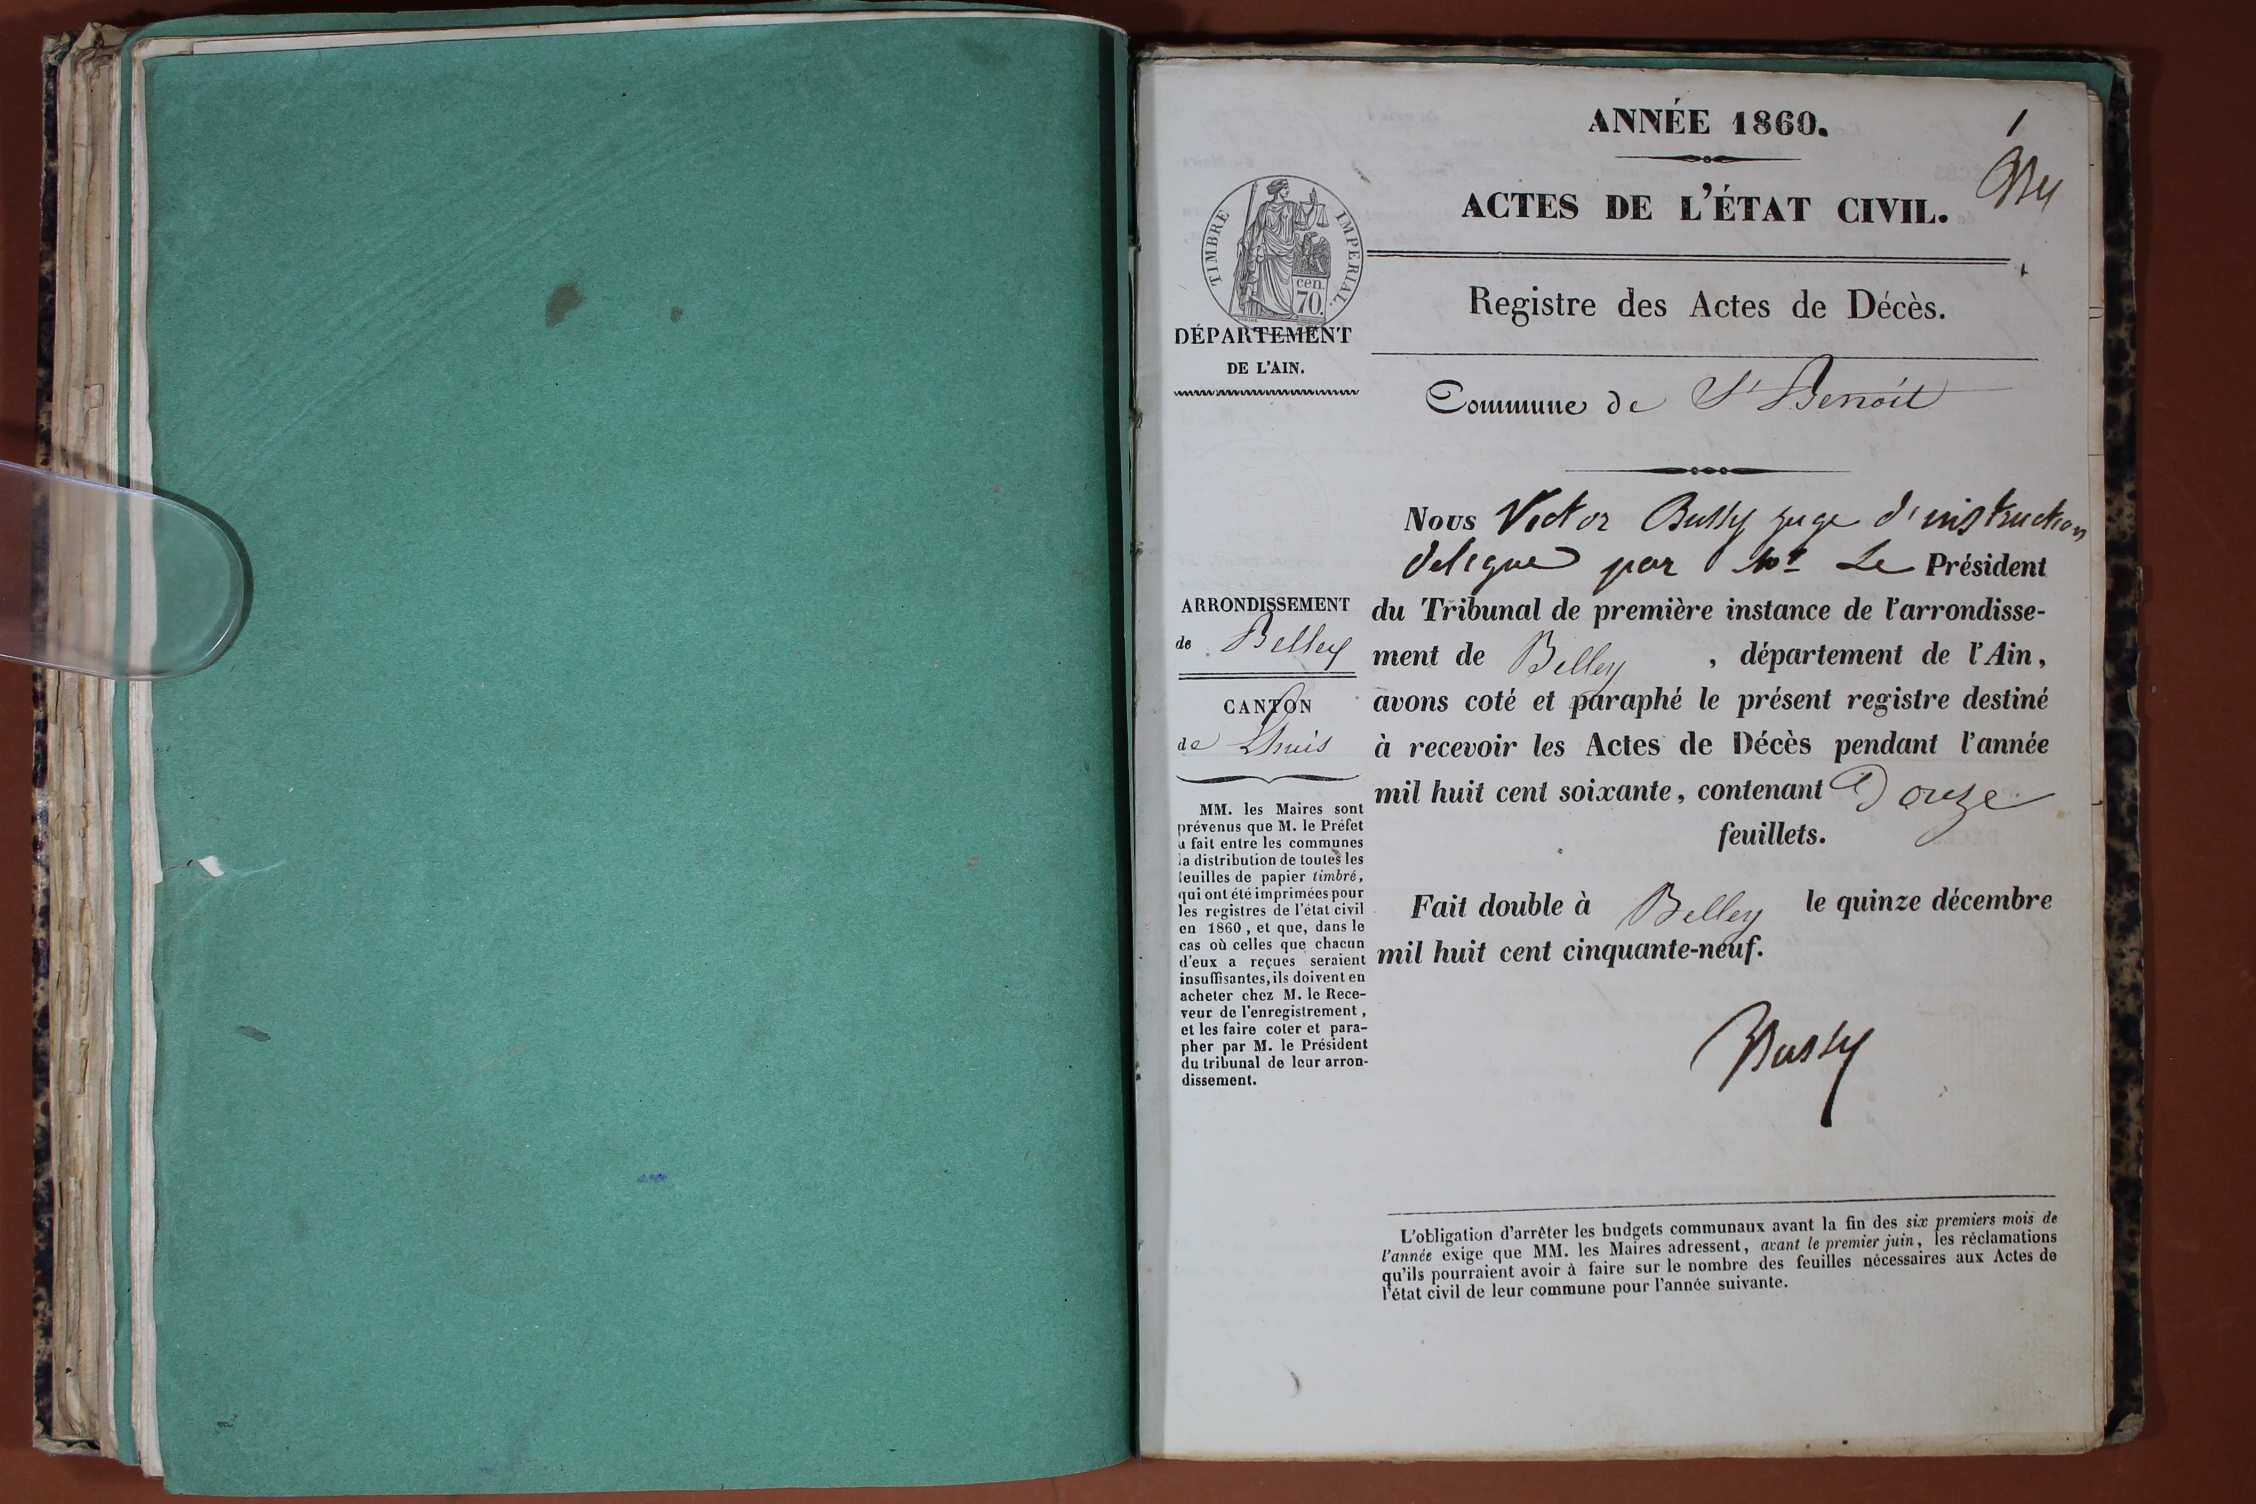 ANNÉE 1860.
1
Bu
ACTES DE L'ÉTAT CIVIL.
TIMBRE IMPERIAL.
cen.
70.
Registre des Actes de Décès.
DÉPARTEMENT
DE L'AIN.
Commune de St Benoit
Nous Victor Bussy juge d'instruction
delegue par Mr Le Président
du Tribunal de première instance de l'arrondisse-
ment de Belley , département de l'Ain,
avons coté et paraphé le présent registre destiné
à recevoir les Actes de Décès pendant l'année
mil huit cent soixante, contenant Douze
feuillets.
Fait double à Belley le quinze décembre
mil huit cent cinquante-neuf.
Bussy
ARRONDISSEMENT
de Belley
CANTON
de Lhuis
MM. les Maires sont
prévenus que M. le Préfet
a fait entre les communes
la distribution de toutes les
feuilles de papier timbré,
qui ont été imprimées pour
les registres de l'état civil
en 1860, et que, dans le
cas où celles que chacun
d'eux a reçues seraient
insuffisantes, ils doivent en
acheter chez M. le Rece-
veur de l'enregistrement,
et les faire coter et para-
pher par M. le Président
du tribunal de leur arron-
dissement.
L'obligation d'arrêter les budgets communaux avant la fin des six premiers mois de
l'année exige que MM. les Maires adressent, avant le premier juin, les réclamations
qu'ils pourraient avoir à faire sur le nombre des feuilles nécessaires aux Actes de
l'état civil de leur commune pour l'année suivante.